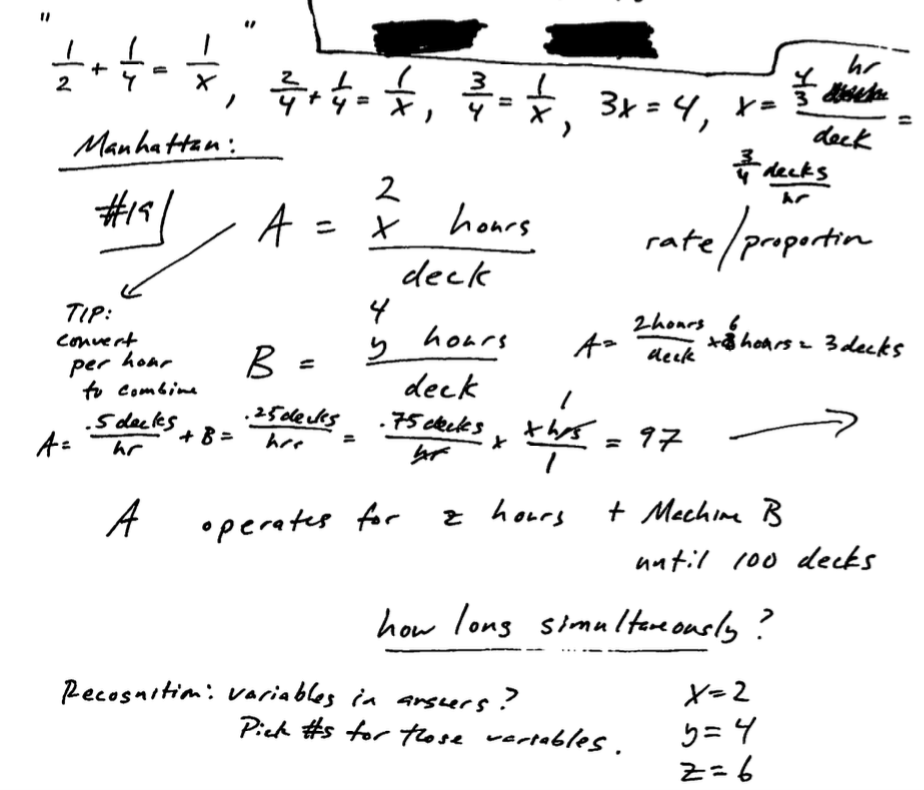 "1/2 + 1/4 = 1/x", 2/4 + 1/4 = 1/x, 3/4 = 1/x, 3x = 4, x = 4/3 hr/deck =
3/4 decks/hr
Manhattan:
#19
A = x hours/deck
2
rate/proportion
TIP:
convert
per hour
to combine
B = y hours/deck
4
A = 2 hours/deck x 6 hours = 3 decks
A = .5 decks/hr + B = .25 decks/hrs = .75 decks/hr x x hrs/1 = 97
1
A operates for z hours + Machine B
until 100 decks
how long simultaneously?
Recognition: variables in answers?
Pick #s for those variables.
x=2
y=4
z=6